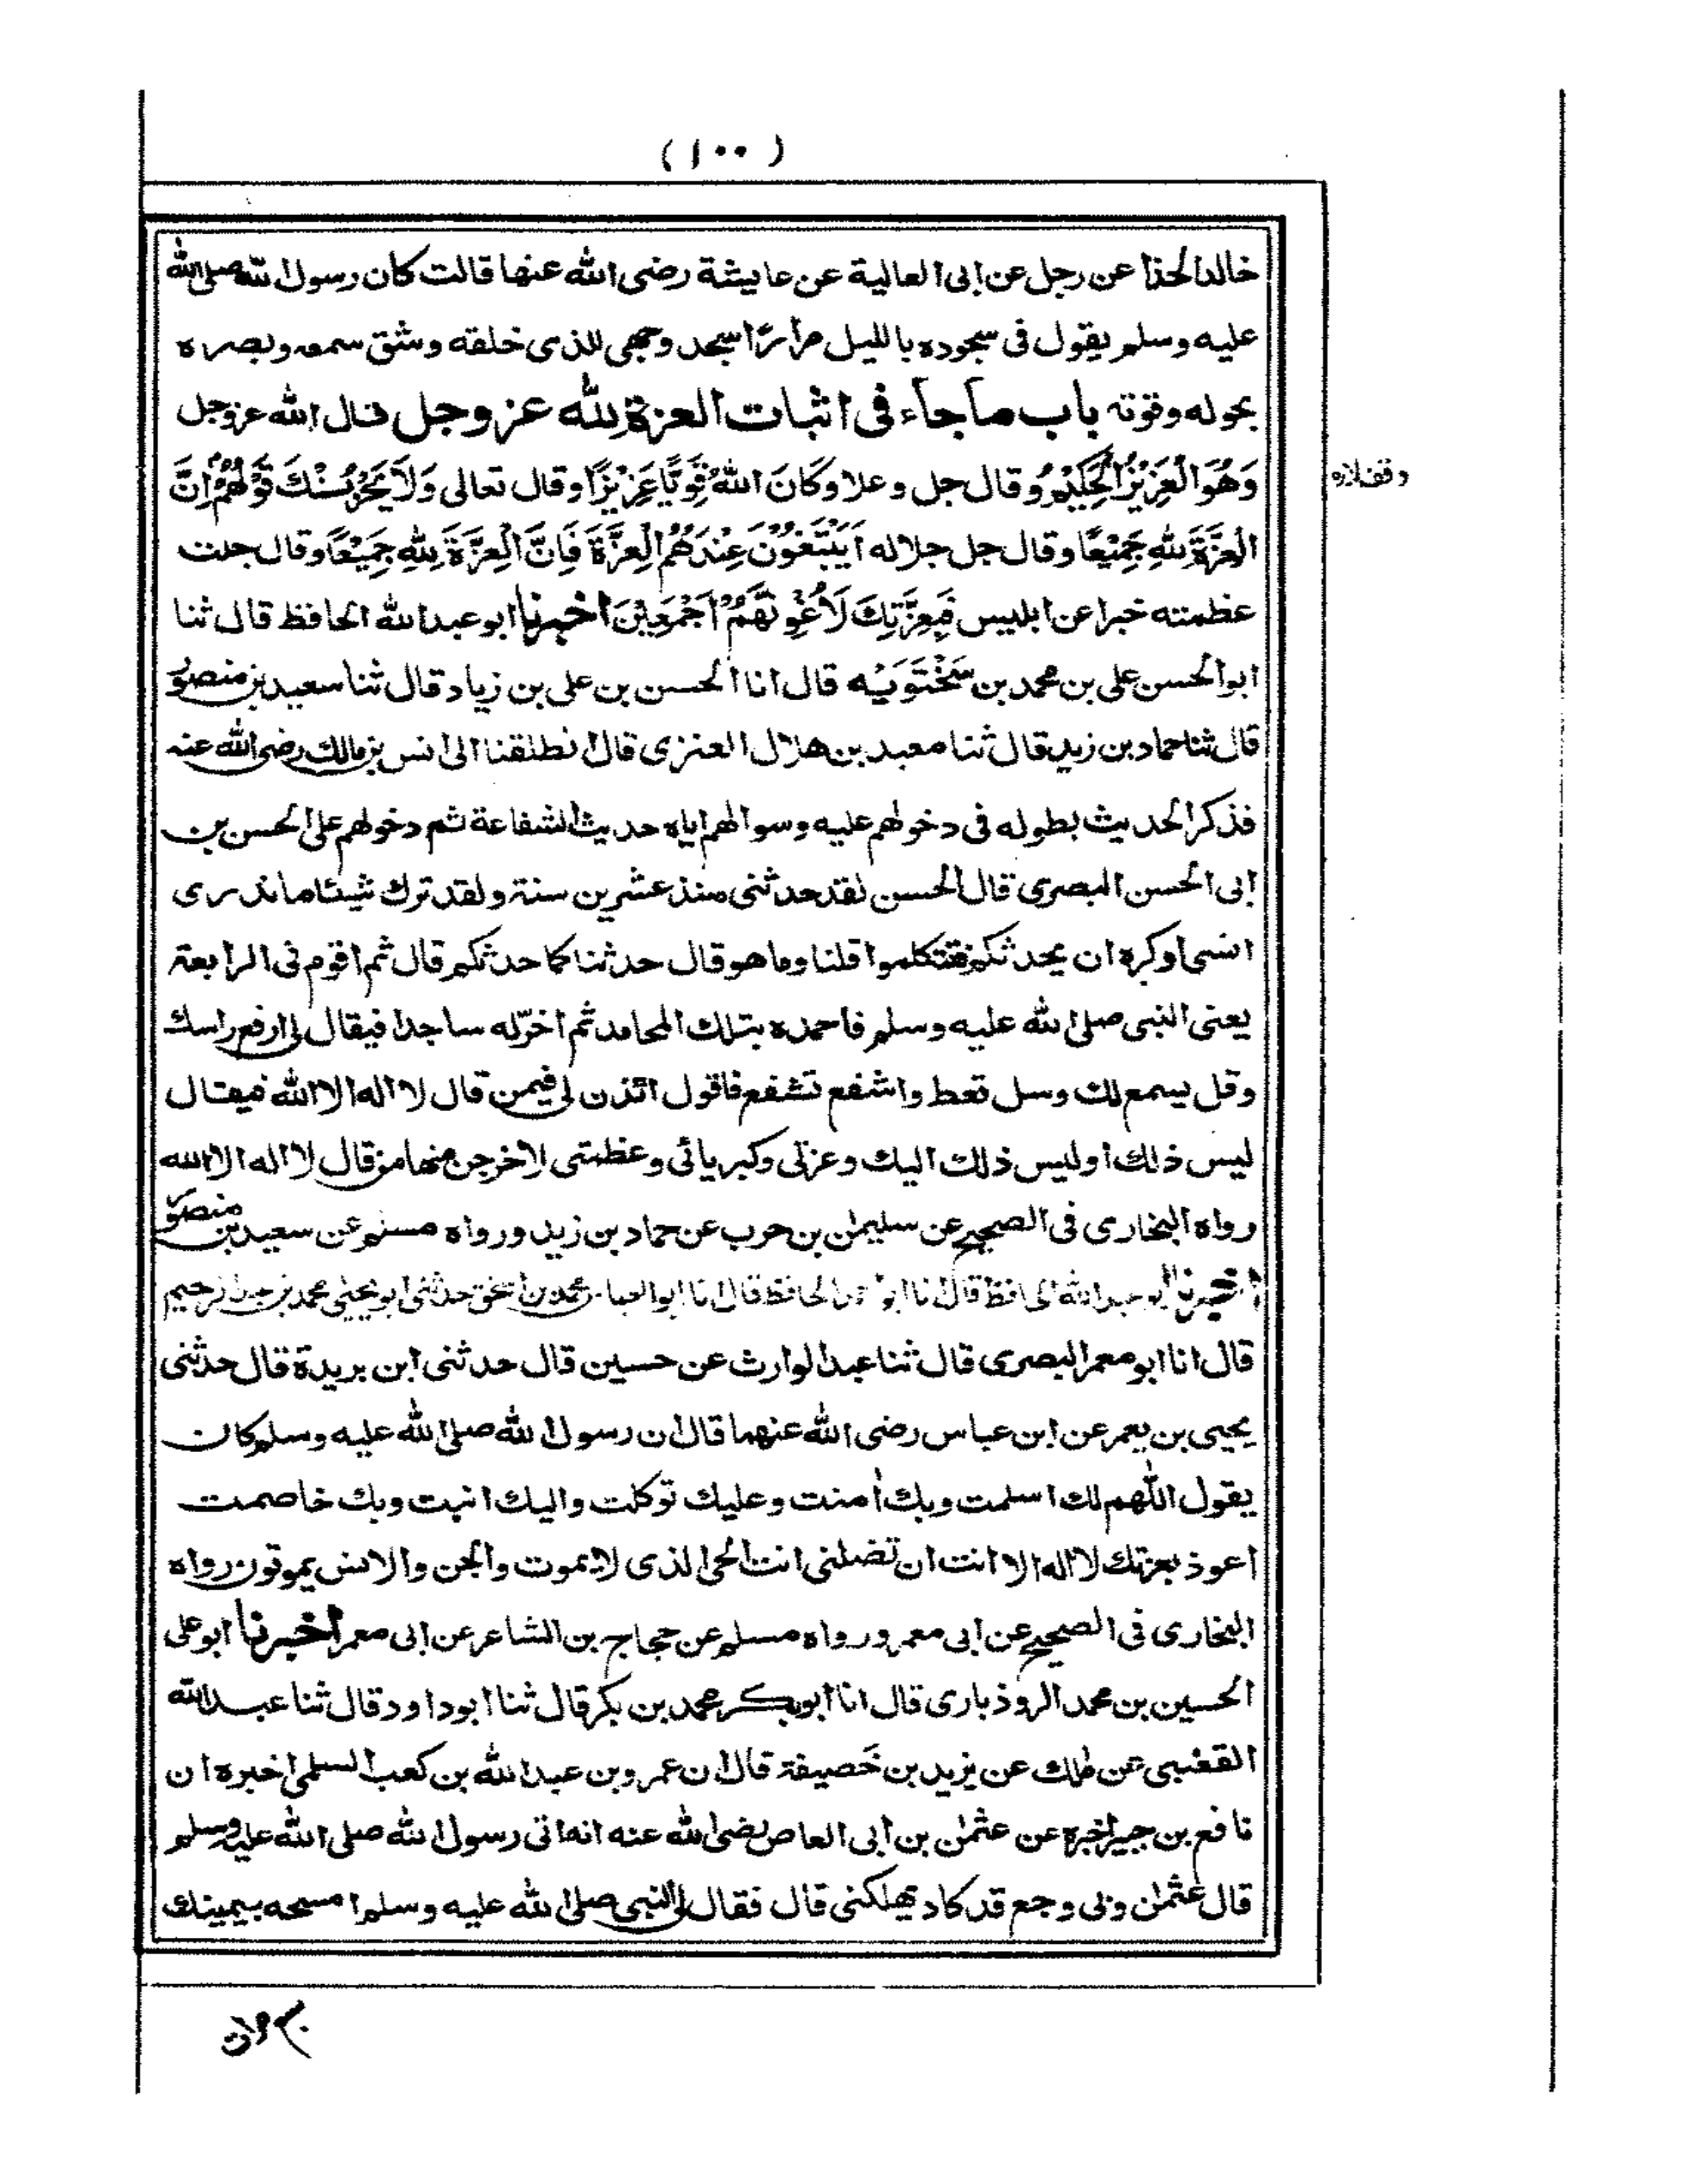 (١٠٠)
خالد الحذا عن رجل عن ابى العالية عن عايشة رضى الله عنها قالت كان رسول الله صلى الله
عليه وسلم يقول فى سجوده بالليل مرارًا سجد وجهى للذى خلقه وشق سمعه وبصره
بحوله وقوته باب ما جاء فى اثبات العزة لله عز وجل قال الله عزوجل
وَهُوَ الْعَزِيْزُ الْحَكِيْمُ وقال جل وعلا وَكَانَ اللهُ قَوِيًّا عَزِيْزًا وقال تعالى وَلَا يَحْزُنْكَ قَوْلُهُمْ اِنَّ
وقف لازم
الْعِزَّةَ لِلّٰهِ جَمِيْعًا وقال جل جلاله اَيَبْتَغُوْنَ عِنْدَهُمُ الْعِزَّةَ فَاِنَّ الْعِزَّةَ لِلّٰهِ جَمِيْعًا وقال جلت
عظمته خبرا عن ابليس فَبِعِزَّتِكَ لَاُغْوِيَنَّهُمْ اَجْمَعِيْنَ اخبرنا ابو عبد الله الحافظ قال ثنا
ابو الحسن على بن محمد بن سَخْتَوَيْه قال انا الحسن بن على بن زياد قال ثنا سعيد بن منصور
قال ثنا حماد بن زيد قال ثنا معبد بن هلال العنزى قال انطلقنا الى انس بن مالك رضى الله عنه
فذكر الحديث بطوله فى دخولهم عليه وسوالهم اياه حديث الشفاعة ثم دخولهم على الحسن بن
ابى الحسن البصرى قال الحسن لقد حدثنى منذ عشرين سنة ولقد ترك شيئا ما ندرى
انسى اوكره ان يحدثكم فتتكلموا قلنا وما هو قال حدثنا كما حدثكم قال ثم اقوم فى الرابعة
يعنى النبى صلى الله عليه وسلم فاحمده بتلك المحامد ثم اخرّ له ساجدا فيقال لى ارفع راسك
وقل يسمع لك وسل تعط واشفع تشفع فاقول ائذن لى فيمن قال لا اله الا الله فيقال
ليس ذلك اوليس ذلك اليك وعزتى وكبريائى وعظمتى لاخرجن منها من قال لا اله الا الله
رواه البخارى فى الصحيح عن سليمٰن بن حرب عن حماد بن زيد ورواه مسلم عن سعيد بن منصور
اخبرنا ابو عبد الله الحافظ قال انا ابو الحافظ قال انا ابو العباس محمد بن اسحٰق حدثنى ابو يحيٰى محمد بن عبد الرحيم
قال انا ابو معمر البصرى قال ثنا عبد الوارث عن حسين قال حدثنى ابن بريدة قال حدثنى
يحيى بن يعمر عن ابن عباس رضى الله عنهما قال ان رسول الله صلى الله عليه وسلم كان
يقول اللهم لك اسلمت وبك اٰمنت وعليك توكلت واليك انبت وبك خاصمت
اعوذ بعزتك لا اله الا انت ان تضلنى انت الحى الذى لا يموت والجن والانس يموتون رواه
البخارى فى الصحيح عن ابى معمر ورواه مسلم عن حجاج بن الشاعر عن ابى معمر اخبرنا ابو على
الحسين بن محمد الروذبارى قال انا ابو بكر محمد بن بكر قال ثنا ابو داود قال ثنا عبد الله
القعنبى عن مٰلك عن يزيد بن خَصيفة قال ان عمرو بن عبد الله بن كعب السلمى اخبره ان
نافع بن جبير اخبره عن عثمٰن بن ابى العاص رضى الله عنه انه اتى رسول الله صلى الله عليه وسلم
قال عثمٰن وبى وجع قد كاد يهلكنى قال فقال لى النبى صلى الله عليه وسلم امسحه بيمينك